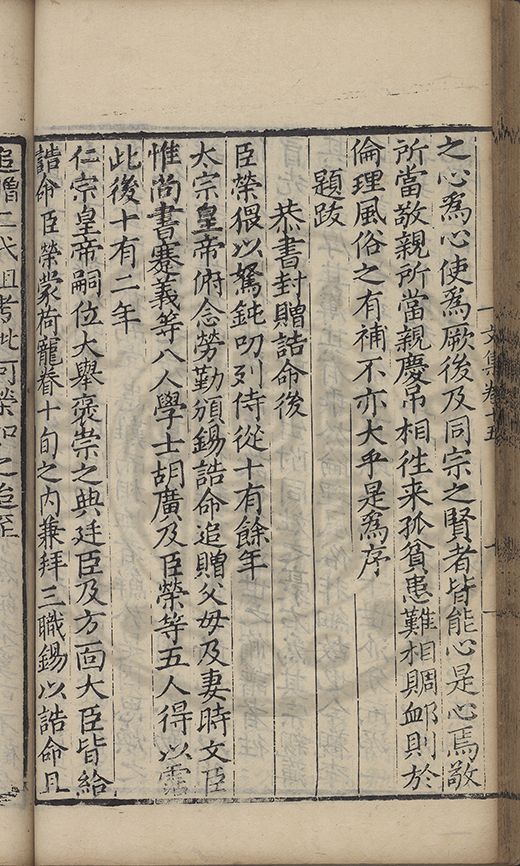 之心爲心使爲厥後及同宗之賢者皆能心是心焉敬
所當敬親所當親慶吊相往来孤貧患難相賙䘏則於
倫理風俗之有補不亦大乎是爲序
題跋
恭書封贈誥命後
臣榮猥以駑鈍叨列侍從十有餘年
太宗皇帝俯念勞勤頒錫誥命追贈父母及妻時文臣
惟尚書蹇義等八人學士胡廣及臣榮等五人得以霑
此後十有二年
仁宗皇帝嗣位大舉褒崇之典廷臣及方面大臣皆給
誥命臣榮蒙荷寵眷十旬之内兼拜三職錫以誥命且
追贈二代祖考此何榮如之追至
文集卷十五